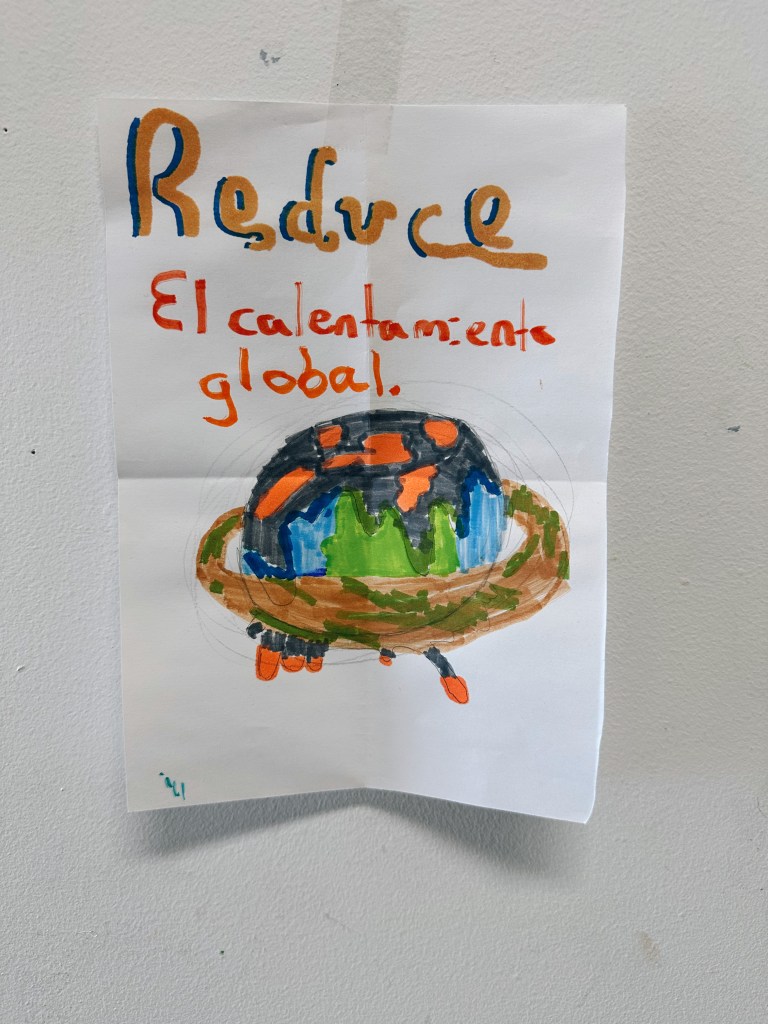 Reduce
El calentamiento
global.